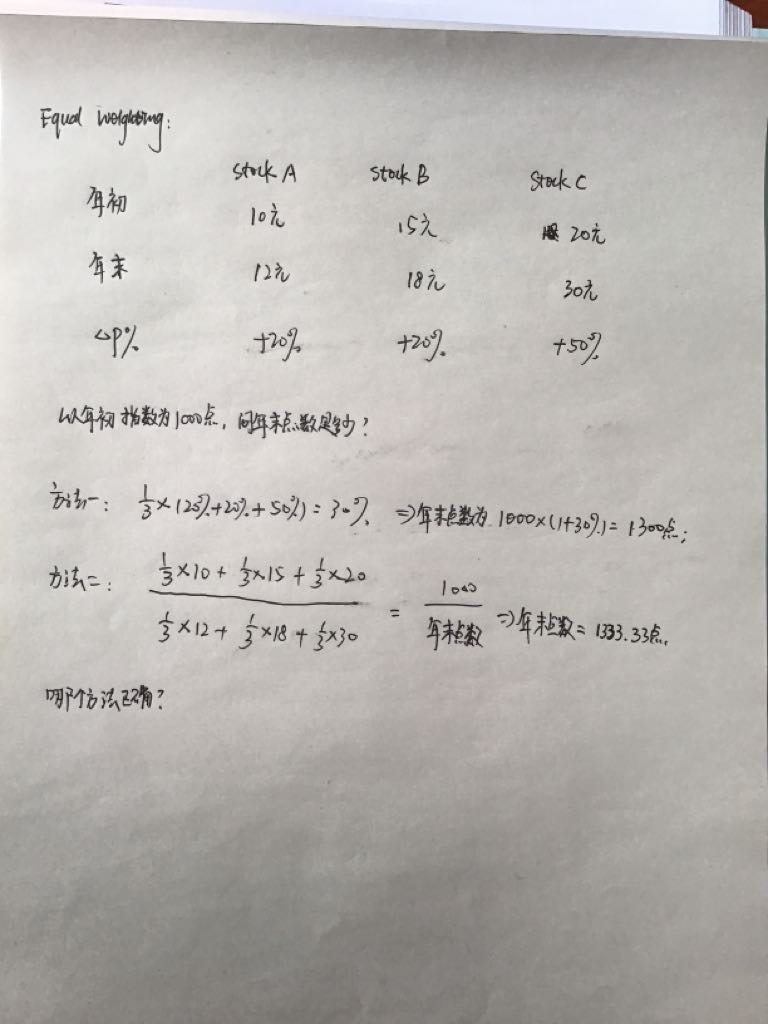 Equal weighting:
Stock A Stock B Stock C
年初 10元 15元 20元
年末 12元 18元 30元
△P% +20% +20% +50%
以年初指数为1000点，问年末点数是多少？
方法一： 1/3×(20%+20%+50%)=30% ⇒年末点数为1000×(1+30%)=1300点；
方法二： (1/3×10+1/3×15+1/3×20)/(1/3×12+1/3×18+1/3×30) = 1000/年末点数 ⇒年末点数=1333.33点.
哪个方法正确？